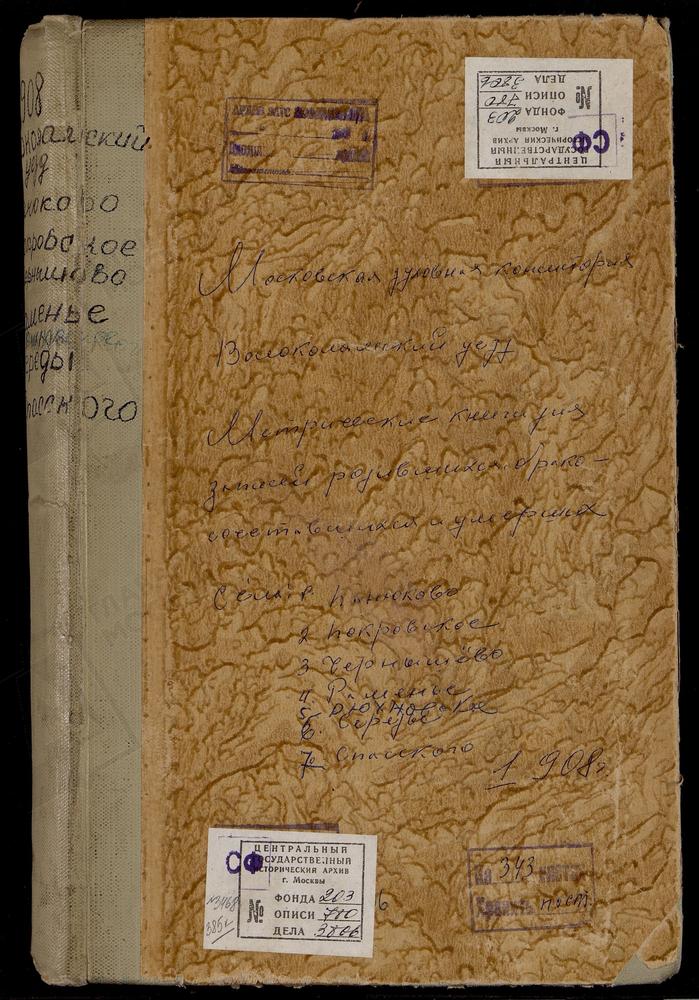 908
уезд
АРХИВ ЗАГС
ЦЕНТРАЛЬНЫЙ
ГОСУДАРСТВЕННЫЙ
ИСТОРИЧЕСКИЙ АРХИВ
г. Москвы
№ ФОНДА 203
ОПИСИ 780
ДЕЛА
СФ
Московская духовная консистория
Волоколамский уезд
Метрические книги для
записей родившихся, брако-
сочетавшихся и умерших
Сёлы: 1. Канюково
2 Покровское
3 Чернышёво
4 Раменье
5 Рюховское
6. Середы
7 Спасского
1908 г.
ЦЕНТРАЛЬНЫЙ
ГОСУДАРСТВЕННЫЙ
ИСТОРИЧЕСКИЙ АРХИВ
г. Москвы
СФ
№ ФОНДА 203
ОПИСИ 780
ДЕЛА
На 343 листах
Хранить пост.